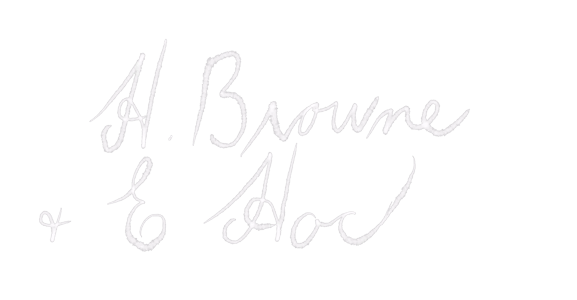 H. Browne
& E Hoc